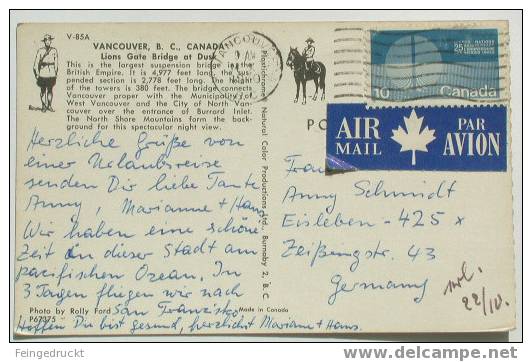 V-85A
VANCOUVER, B. C., CANADA
Lions Gate Bridge at Dusk
This is the largest suspension bridge in the
British Empire. It is 4,977 feet long, the sus-
pended section is 2,778 feet long. The height
of the towers is 380 feet. The bridge connects
Vancouver proper with the Municipality of
West Vancouver and the City of North Van-
couver over the entrance of Burrard Inlet.
The North Shore Mountains form the back-
ground for this spectacular night view.
Herzliche Grüße von
einer Urlaubsreise
senden Dir liebe Tante
Anny, Marianne + Hans
Wir haben eine schöne
Zeit in dieser Stadt am
pacifischen Ozean. In
3 Tagen fliegen wir nach
San Franzisko
Hoffen Du bist gesund, herzlichst Marianne + Hans.
Photo by Rolly Ford
P67375
Made in Canada
Natural Color Productions Ltd., Burnaby 2, B.C.
VANCOUVER
PO
25
10
Canada
AIR MAIL
PAR AVION
Frau
Anny Schmidt
Eisleben - 425 x
Zeißingstr. 43
Germany
22/10.
Feingedruckt
www.delcampe.net